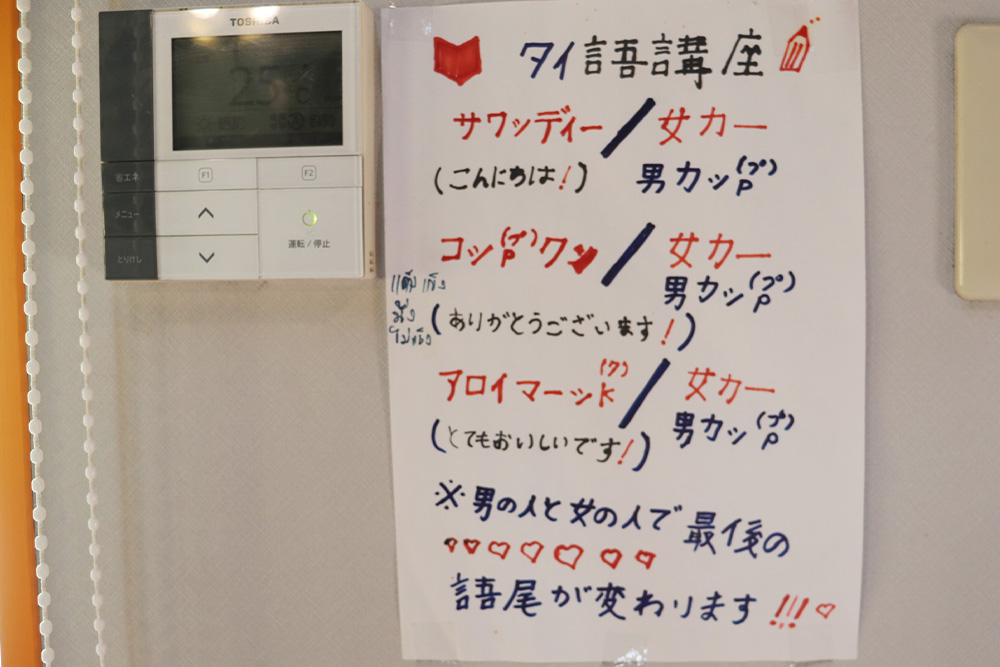 TOSHIBA
25℃
省エネ
F1
F2
メニュー
とりけし
運転/停止
タイ語講座
サワッディー/女カー
(こんにちは!) 男カッp(プ)
コッp(プ)クン/女カー
男カッp(プ)
(ありがとうございます!)
アロイマーッk(ク)/女カー
男カッp(プ)
(とてもおいしいです!)
※男の人と女の人で最後の
語尾が変わります!!!